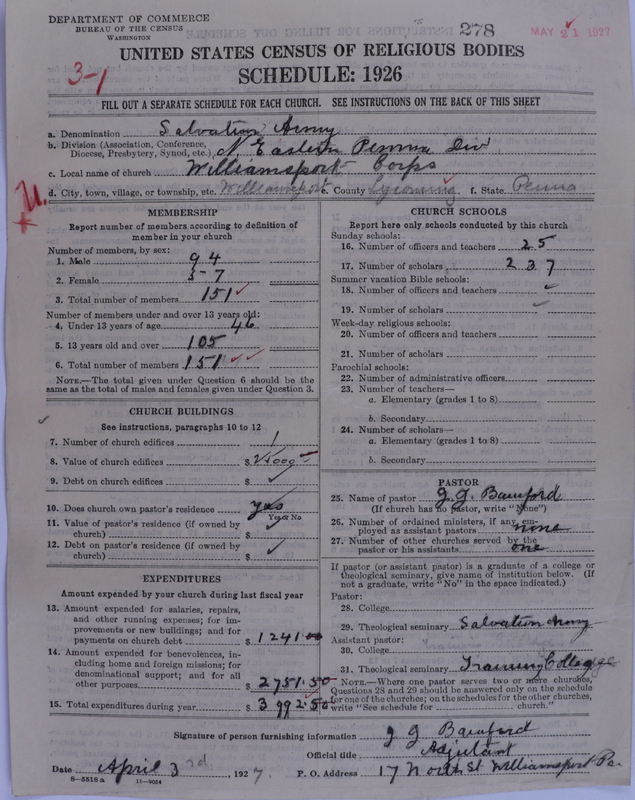 DEPARTMENT OF COMMERCE
BUREAU OF THE CENSUS
WASHINGTON
278
MAY 21 1927
UNITED STATES CENSUS OF RELIGIOUS BODIES
SCHEDULE: 1926
3-1
FILL OUT A SEPARATE SCHEDULE FOR EACH CHURCH. SEE INSTRUCTIONS ON THE BACK OF THIS SHEET
a. Denomination Salvation Army
b. Division (Association, Conference,
Diocese, Presbytery, Synod, etc.) N Eastern Penna Div
c. Local name of church Williamsport Corps
d. City, town, village, or township, etc. Williamsport e. County Lycoming f. State Penna
MEMBERSHIP
Report number of members according to definition of
member in your church
Number of members, by sex:
1. Male 94
2. Female 57
3. Total number of members 151
Number of members under and over 13 years old:
4. Under 13 years of age 46
5. 13 years old and over 105
6. Total number of members 151
NOTE.—The total given under Question 6 should be
same as the total of males and females given under Question 3.
CHURCH BUILDINGS
See instructions, paragraphs 10 to 12
7. Number of church edifices 1
8. Value of church edifices $
9. Debt on church edifices $
10. Does church own pastor's residence yes
Yes or No
11. Value of pastor's residence (if owned by
church) $
12. Debt on pastor's residence (if owned by
church) $
EXPENDITURES
Amount expended by your church during last fiscal year
13. Amount expended for salaries, repairs,
and other running expenses; for im-
provements or new buildings; and for
payments on church debt $ 1241.00
14. Amount expended for benevolences, in-
cluding home and foreign missions; for
denominational support; and for all
other purposes $ 2751.50
15. Total expenditures during year $ 3992.50
CHURCH SCHOOLS
Report here only schools conducted by this church
Sunday schools:
16. Number of officers and teachers 25
17. Number of scholars 237
Summer vacation Bible schools:
18. Number of officers and teachers
19. Number of scholars
Week-day religious schools:
20. Number of officers and teachers
21. Number of scholars
Parochial schools:
22. Number of administrative officers
23. Number of teachers—
a. Elementary (grades 1 to 8)
b. Secondary
24. Number of scholars—
a. Elementary (grades 1 to 8)
b. Secondary
PASTOR
25. Name of pastor J. J. Bamford
(If church has no pastor, write "None")
26. Number of ordained ministers, if any, em-
ployed as assistant pastors none
27. Number of other churches served by the
pastor or his assistants one
If pastor (or assistant pastor) is a graduate of a college or
theological seminary, give name of institution below. (If
not a graduate, write "No" in the space indicated.)
Pastor:
28. College
29. Theological seminary Salvation Army
Assistant pastor:
30. College
31. Theological seminary Training College
NOTE.—Where one pastor serves two or more churches,
Questions 28 and 29 should be answered only on the schedule
for one of the churches; on the schedules for the other churches,
write "See schedule for church."
Signature of person furnishing information J J Bamford
Official title Adjutant
Date April 3rd 1927. P. O. Address 17 North St Williamsport Pa
8-5518 a 11-9024